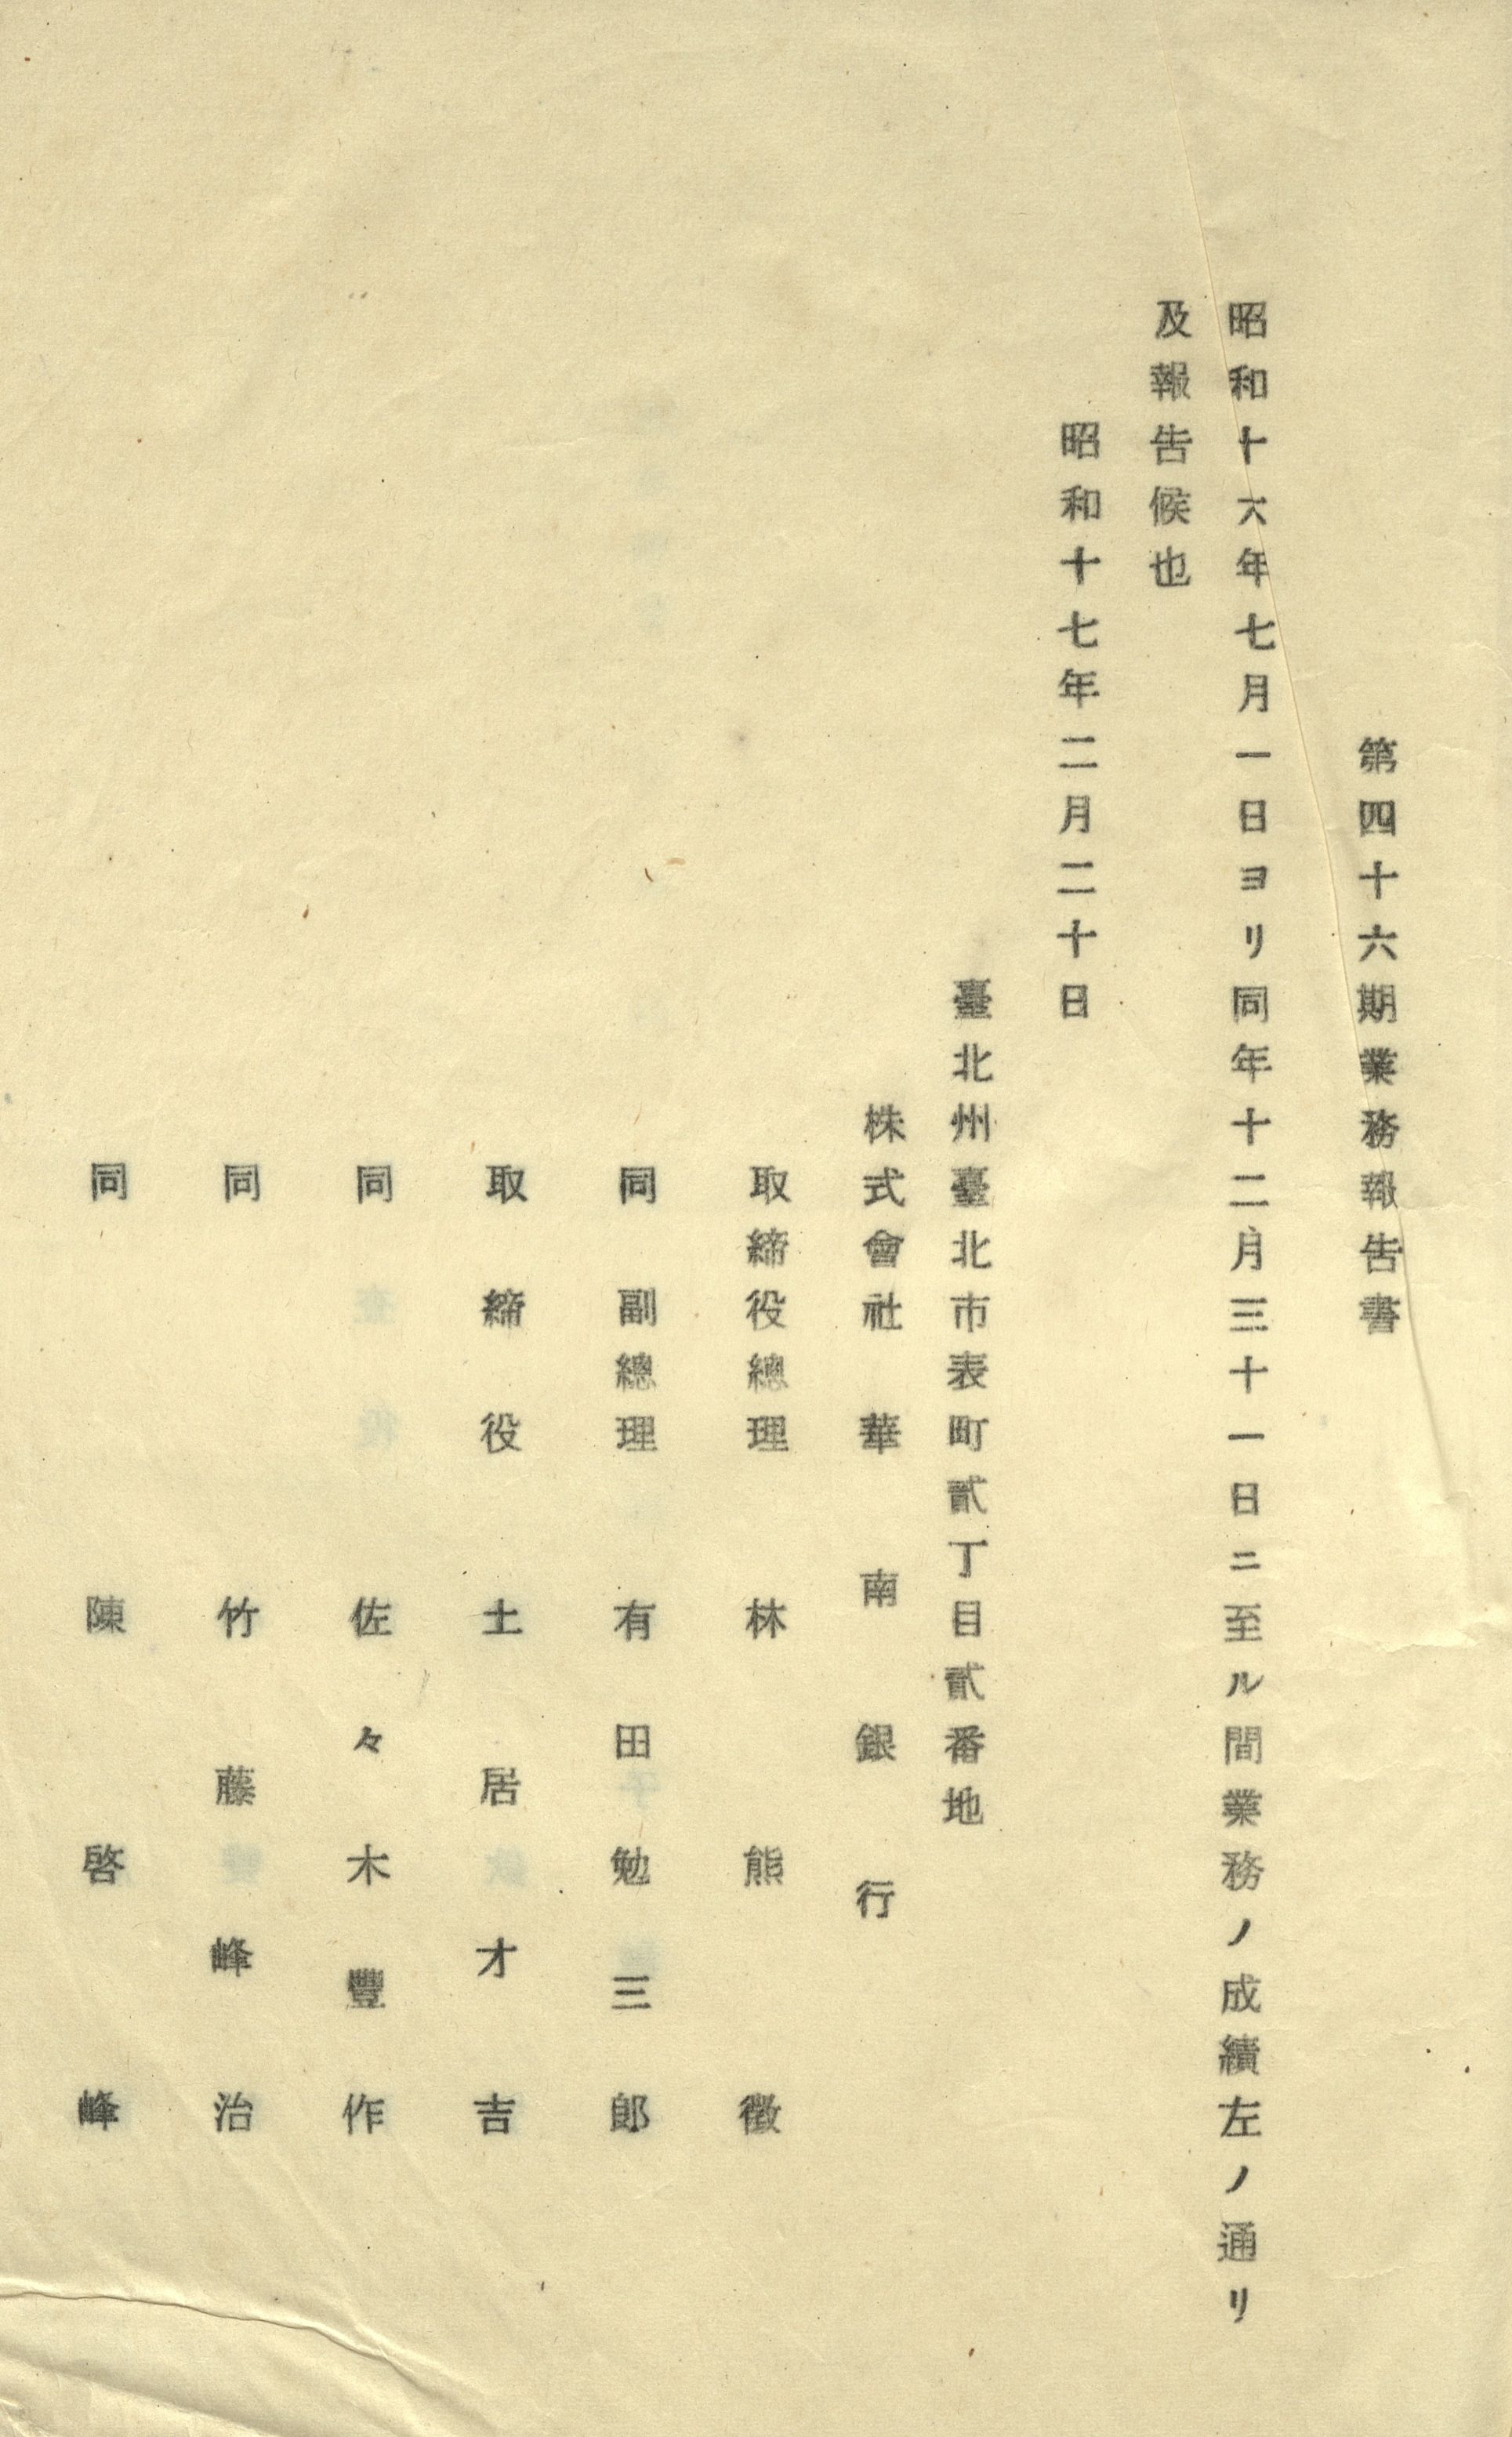 第四十六期業務報告書
昭和十六年七月一日ヨリ同年十二月三十一日ニ至ル間業務ノ成績左ノ通リ
及報告候也
昭和十七年二月二十日
臺北州臺北市表町貳丁目貳番地
株式會社 華南銀行
取締役總理 林熊徴
同副總理 有田勉三郎
取締役 土居才吉
同 佐々木豐作
同 竹藤峰治
同 陳啓峰